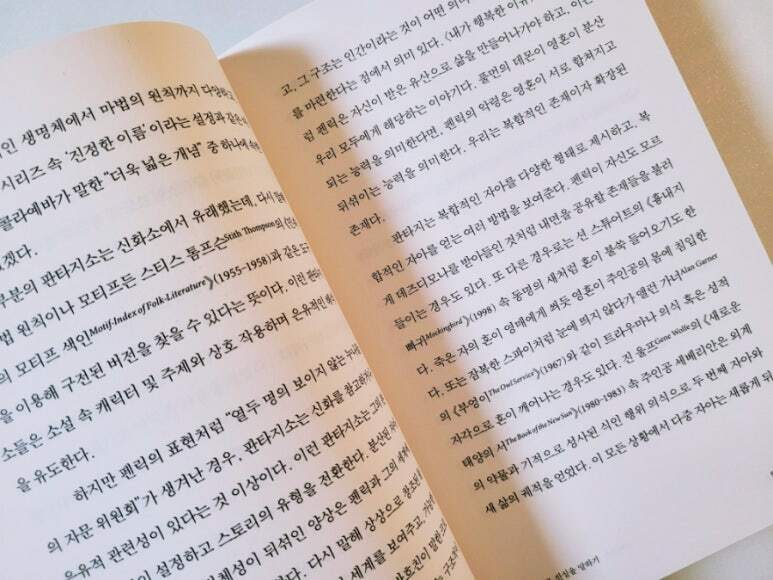 인 생명체에서 마법의 원칙까지 다양하고
시리즈 속 ‘진정한 이름’이라는 설정과 같은
콜라예바가 말한 “더욱 넓은 개념” 중 하나에
겠다.
부분의 판타지소는 신화소에서 유래했는데, 다시
법 원칙이나 모티프든 스티스 톰프슨Stith Thompson의
의 모티프 색인Motif-Index of Folk-Literature》(1955-1958)과 같은
을 이용해 구전된 버전을 찾을 수 있다는 뜻이다. 이런
소들은 소설 속 캐릭터 및 주제와 상호 작용하며 은유적인
을 유도한다.
하지만 펜릭의 표현처럼 “열두 명의 보이지 않는
의 자문 위원회”가 생겨난 경우, 판타지소는 신화를 참고하
은유적 관련성이 있다는 것 이상이다. 이런 판타지소는 그
이 설정하고 스토리의 유형을 전환한다. 분산된
체성이 뒤섞인 양상은 펜릭과 그의
다. 다시 말해 상상으로 창조된
세계를 보여주고,
고, 그 구조는 인간이라는 것이 어떤 의미
를 마련한다는 점에서 의미 있다. 〈내가 행복한 이유〉
럼 펜릭은 자신이 받은 유산으로 삶을 만들어나가야 하고, 이는
우리 모두에게 해당하는 이야기다. 풀먼의 데몬이 영혼이 분산
되는 능력을 의미한다면, 펜릭의 악령은 영혼이 서로 합쳐지고
뒤섞이는 능력을 의미한다. 우리는 복합적인 존재이자 확장된
존재다.
판타지는 복합적인 자아를 다양한 형태로 제시하고, 복
합적인 자아를 얻는 여러 방법을 보여준다. 펜릭이 자신도 모르
게 데즈디모나를 받아들인 것처럼 내면을 공유할 존재들을 불러
들이는 경우도 있다. 또 다른 경우로는 션 스튜어트의 《흉내지
빠귀Mockingbird》(1998) 속 동명의 새처럼 혼이 불쑥 들어오기도 한
다. 죽은 자의 혼이 영매에게 씌듯 영혼이 주인공의 몸에 침입한
다. 또는 잠복한 스파이처럼 눈에 띄지 않다가 앨런 가너Alan Garner
의 《부엉이The Owl Service》(1967)와 같이 트라우마나 의식 혹은 성적
자각으로 혼이 깨어나는 경우도 있다. 진 울프Gene Wolfe의 《새로운
태양의 서The Book of the New Sun》(1980-1983) 속 주인공 세베리안은 외계
의 약물과 기적으로 성사된 식인 행위 의식으로 두 번째 자아와
새 삶의 궤적을 얻었다. 이 모든 상황에서 다중 자아는 새롭게 뒤